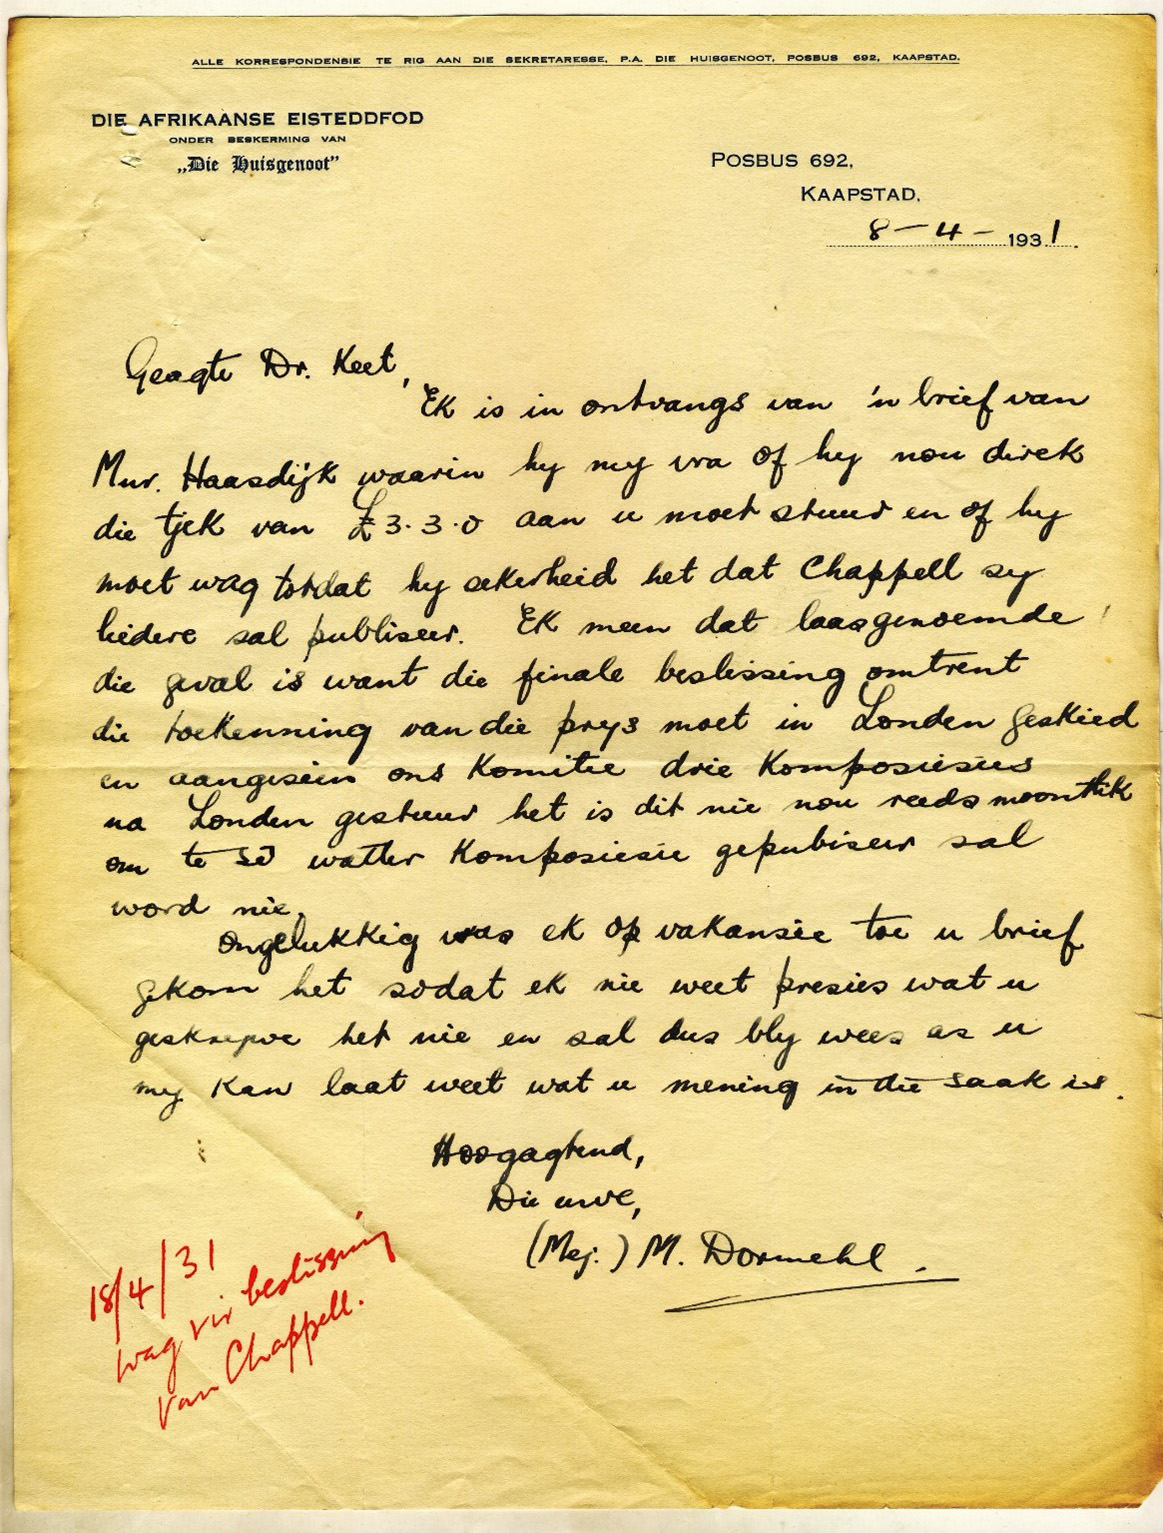 ALLE KORRESPONDENSIE TE RIG AAN DIE SEKRETARESSE, P.A. DIE HUISGENOOT, POSBUS 692, KAAPSTAD.
DIE AFRIKAANSE EISTEDDFOD
ONDER BESKERMING VAN
„Die Huisgenoot”
POSBUS 692,
KAAPSTAD,
8 - 4 - 1931.
Geagte Dr. Keet,
Ek is in ontvangs van 'n brief van
Mnr. Haasdijk waarin hy my vra of hy nou direk
die tjek van £3.3.0 aan u moet stuur en of hy
moet wag totdat hy sekerheid het dat Chappell sy
liedere sal publiseer. Ek meen dat laasgenoemde
die geval is want die finale beslissing omtrent
die toekenning van die prys moet in Londen geskied
en aangesien ons Komitie drie Komposiesies
na Londen gestuur het is dit nie nou reeds moontlik
om te sê watter Komposiesie gepubiseer sal
word nie.
Ongelukkig was ek op vakansie toe u brief
gekom het sodat ek nie weet presies wat u
geskrywe het nie en sal dus bly wees as u
my kan laat weet wat u mening in die saak is.
Hoogagtend,
Die uwe,
(Mej.) M. Dormehl.
18/4/31
Wag vir beslissing
van Chappell.